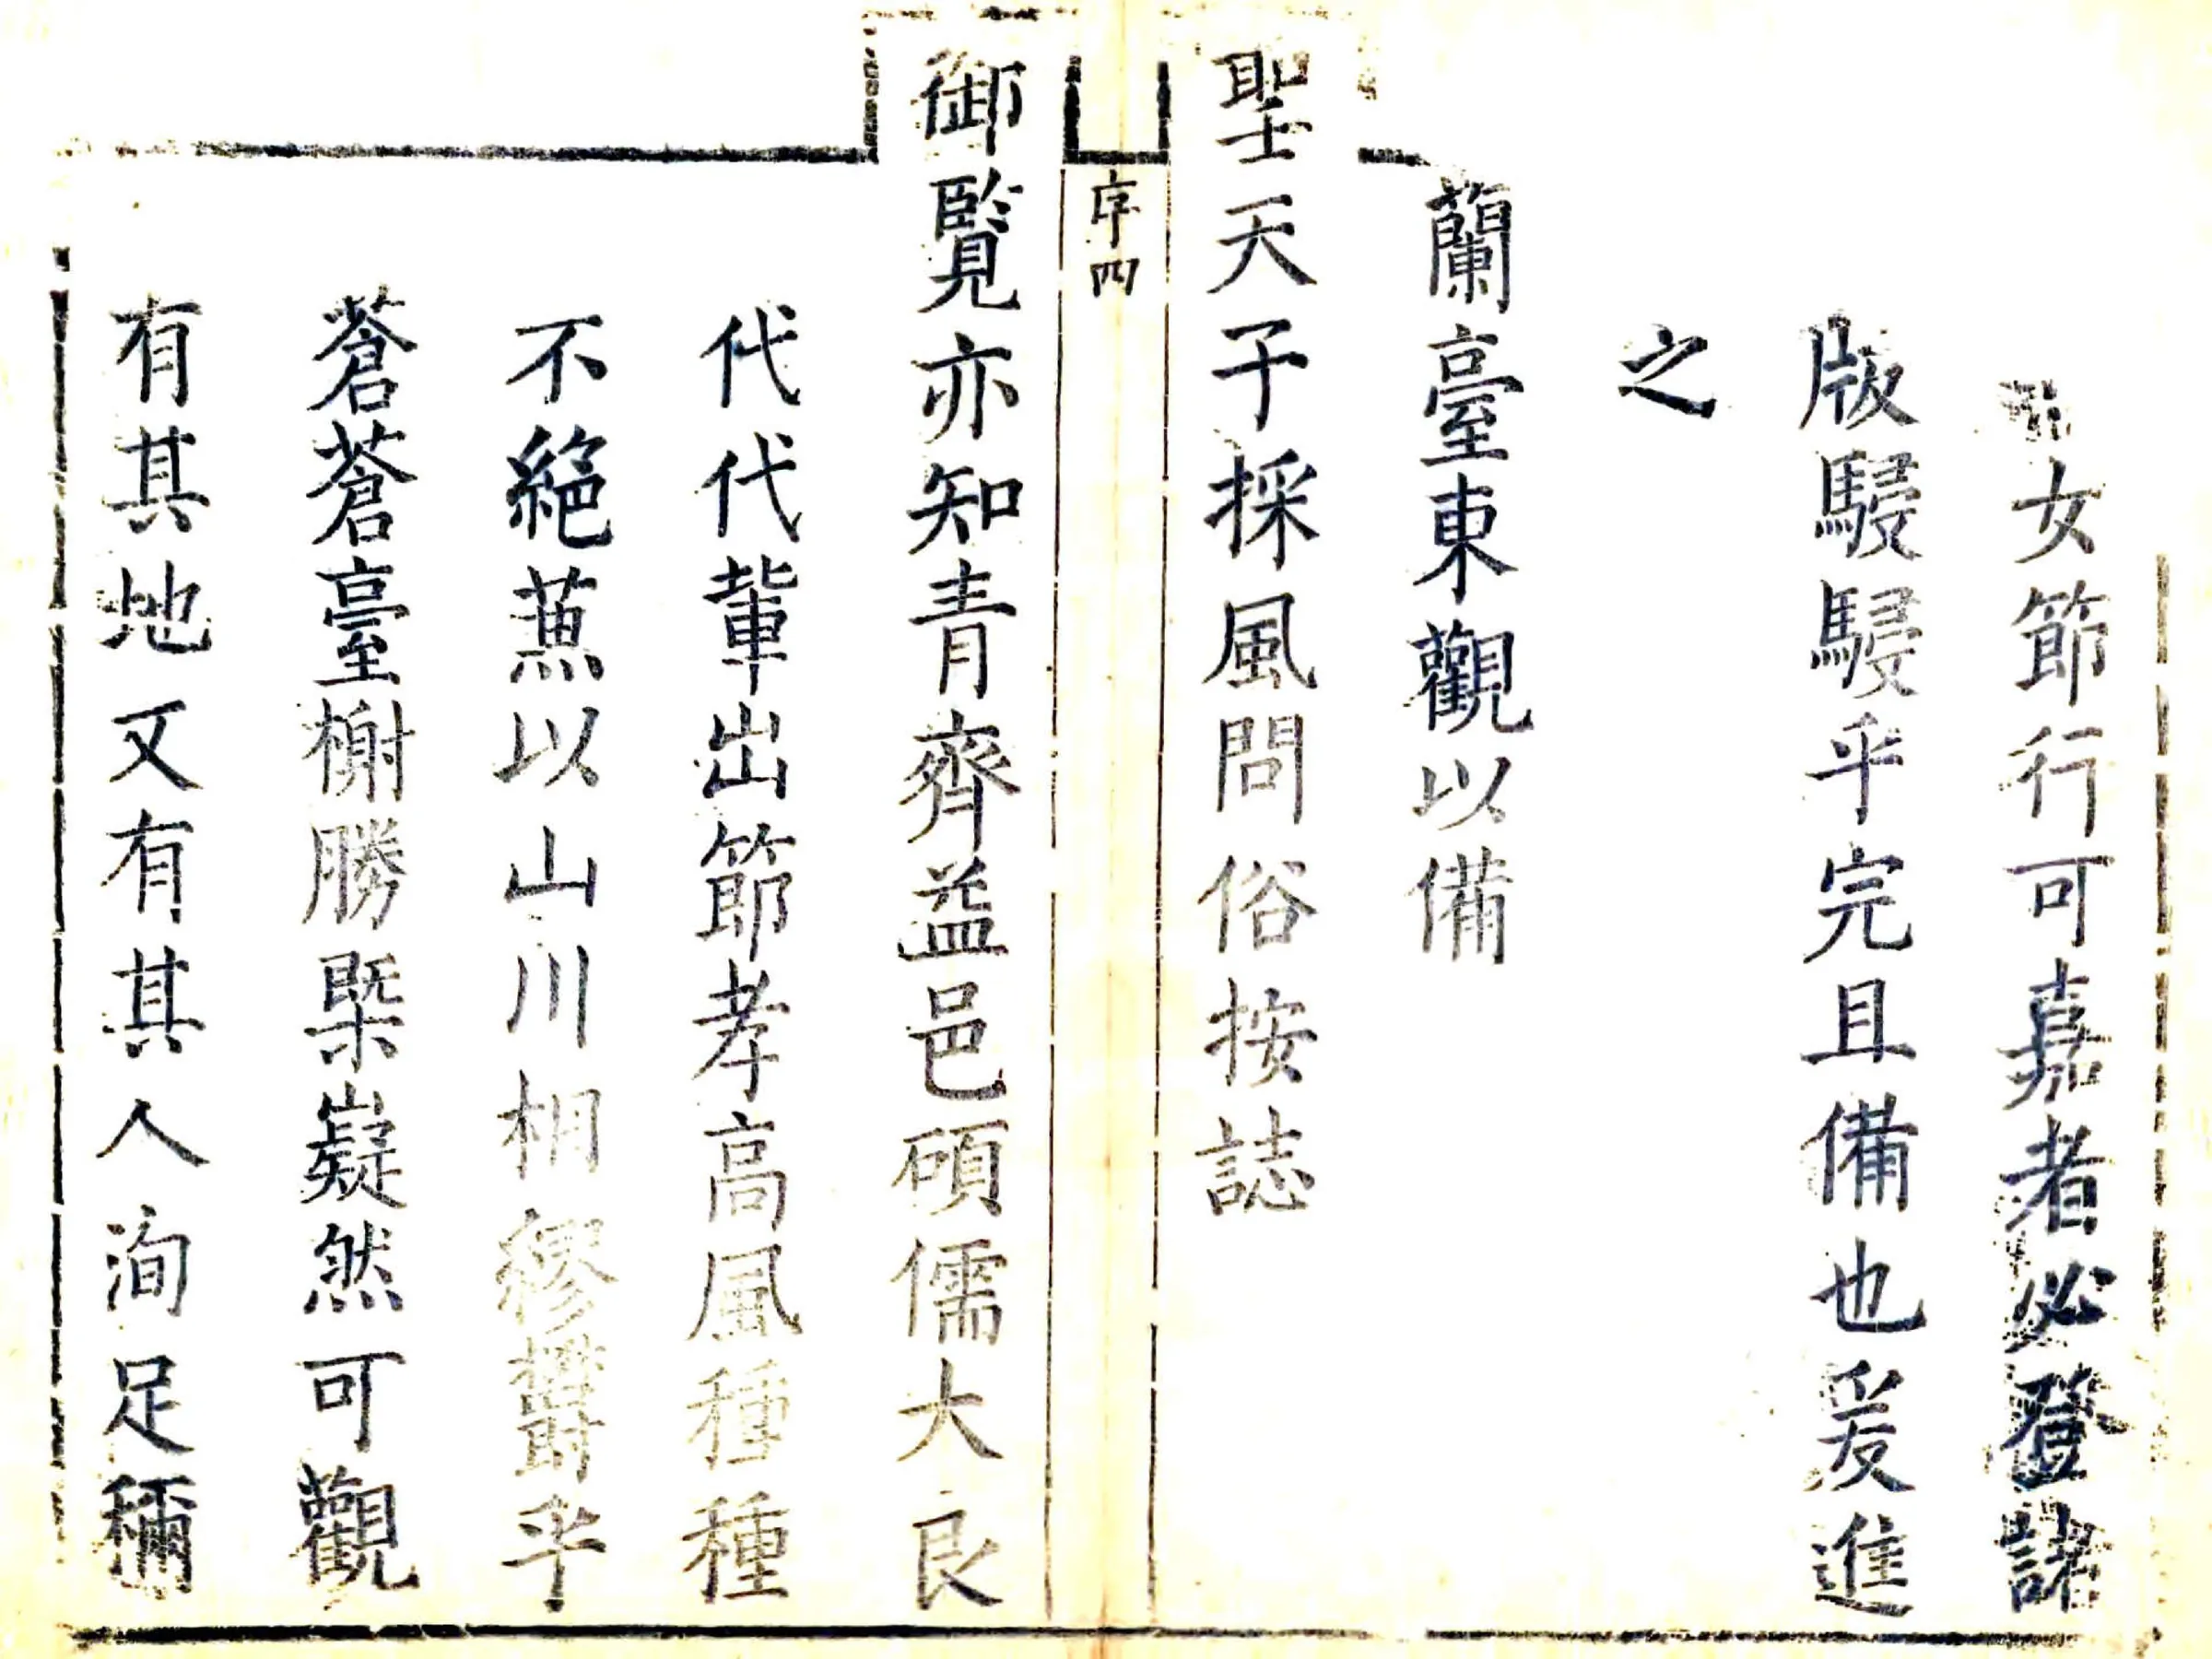 女節行可嘉者必登諸
版駸駸乎完且備也爰進
之
蘭臺東觀以備
聖天子採風問俗按誌
序四
御覽亦知青齊益邑碩儒大良
代代輩出節孝高風種種
不絕兼以山川相繆欝乎
蒼蒼臺榭勝槩嶷然可觀
有其地又有其人洵足穪